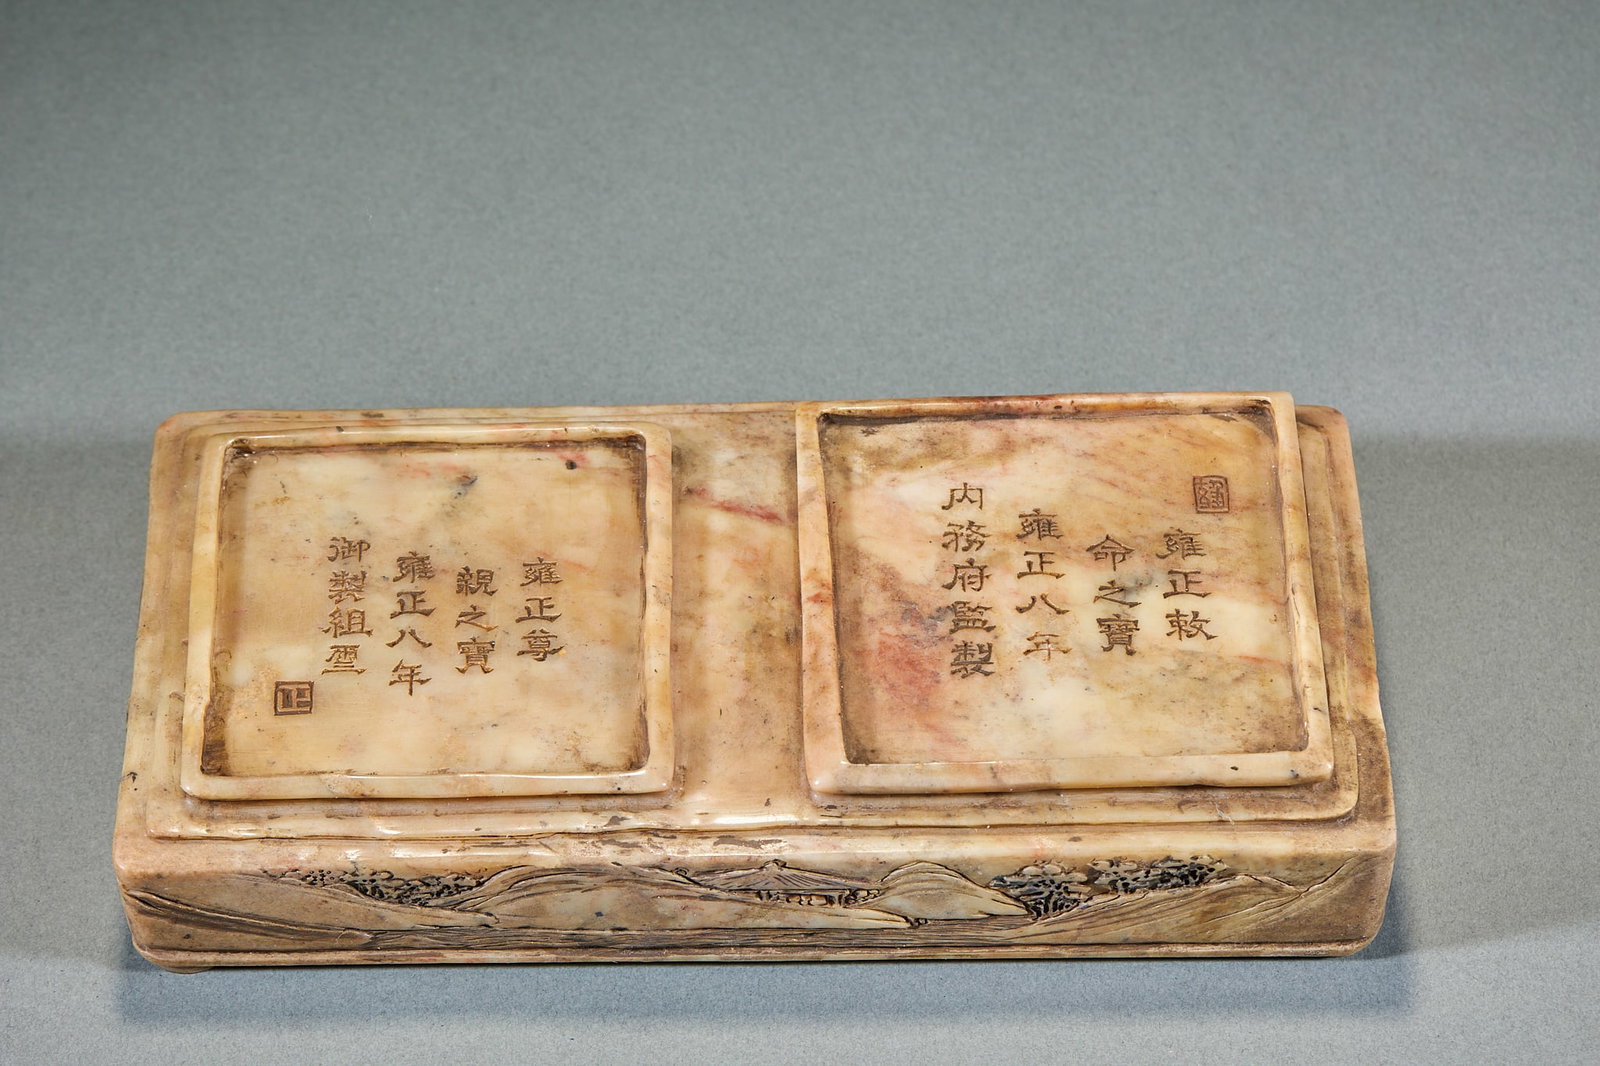 雍
雍正敕
命之寶
雍正八年
内務府監製
雍正尊
親之寶
雍正八年
御製組璽
正